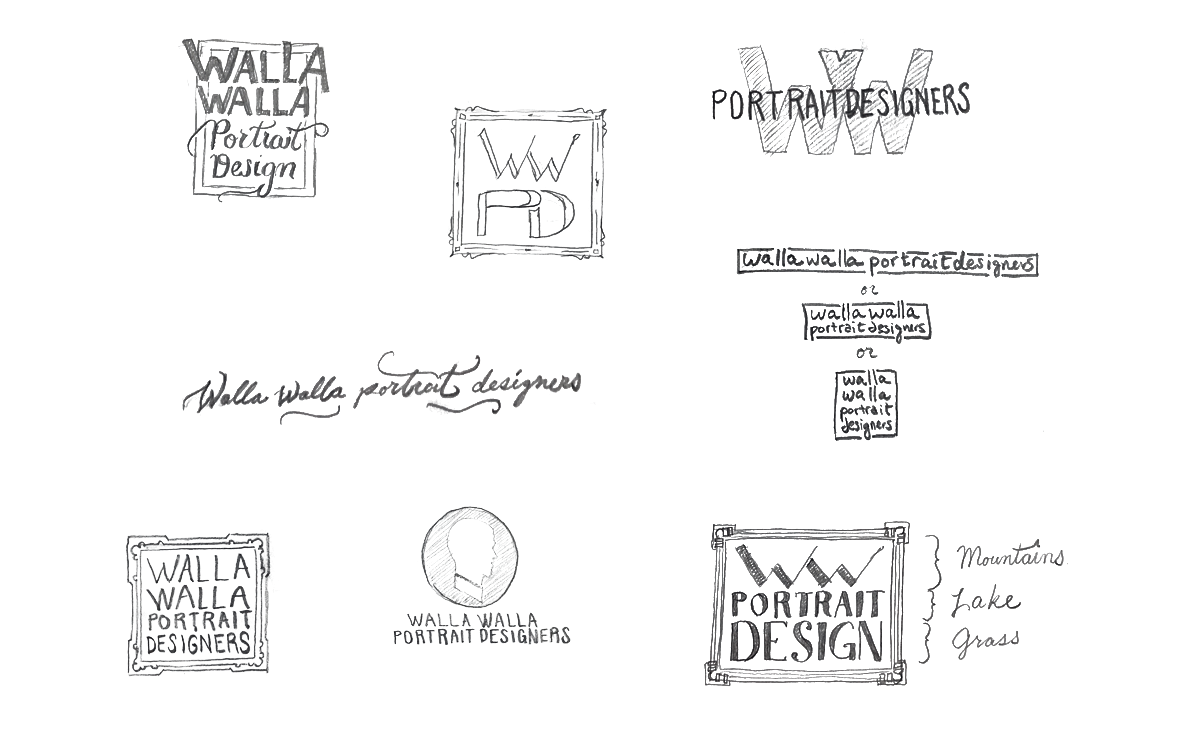 WALLA
WALLA
Portrait
Design
WW
PD
WW
PORTRAIT DESIGNERS
walla walla portrait designers
or
walla walla
portrait designers
or
walla
walla
portrait
designers
Walla Walla portrait designers
WALLA
WALLA
PORTRAIT
DESIGNERS
WALLA WALLA
PORTRAIT DESIGNERS
WW
PORTRAIT
DESIGN
Mountains
Lake
Grass